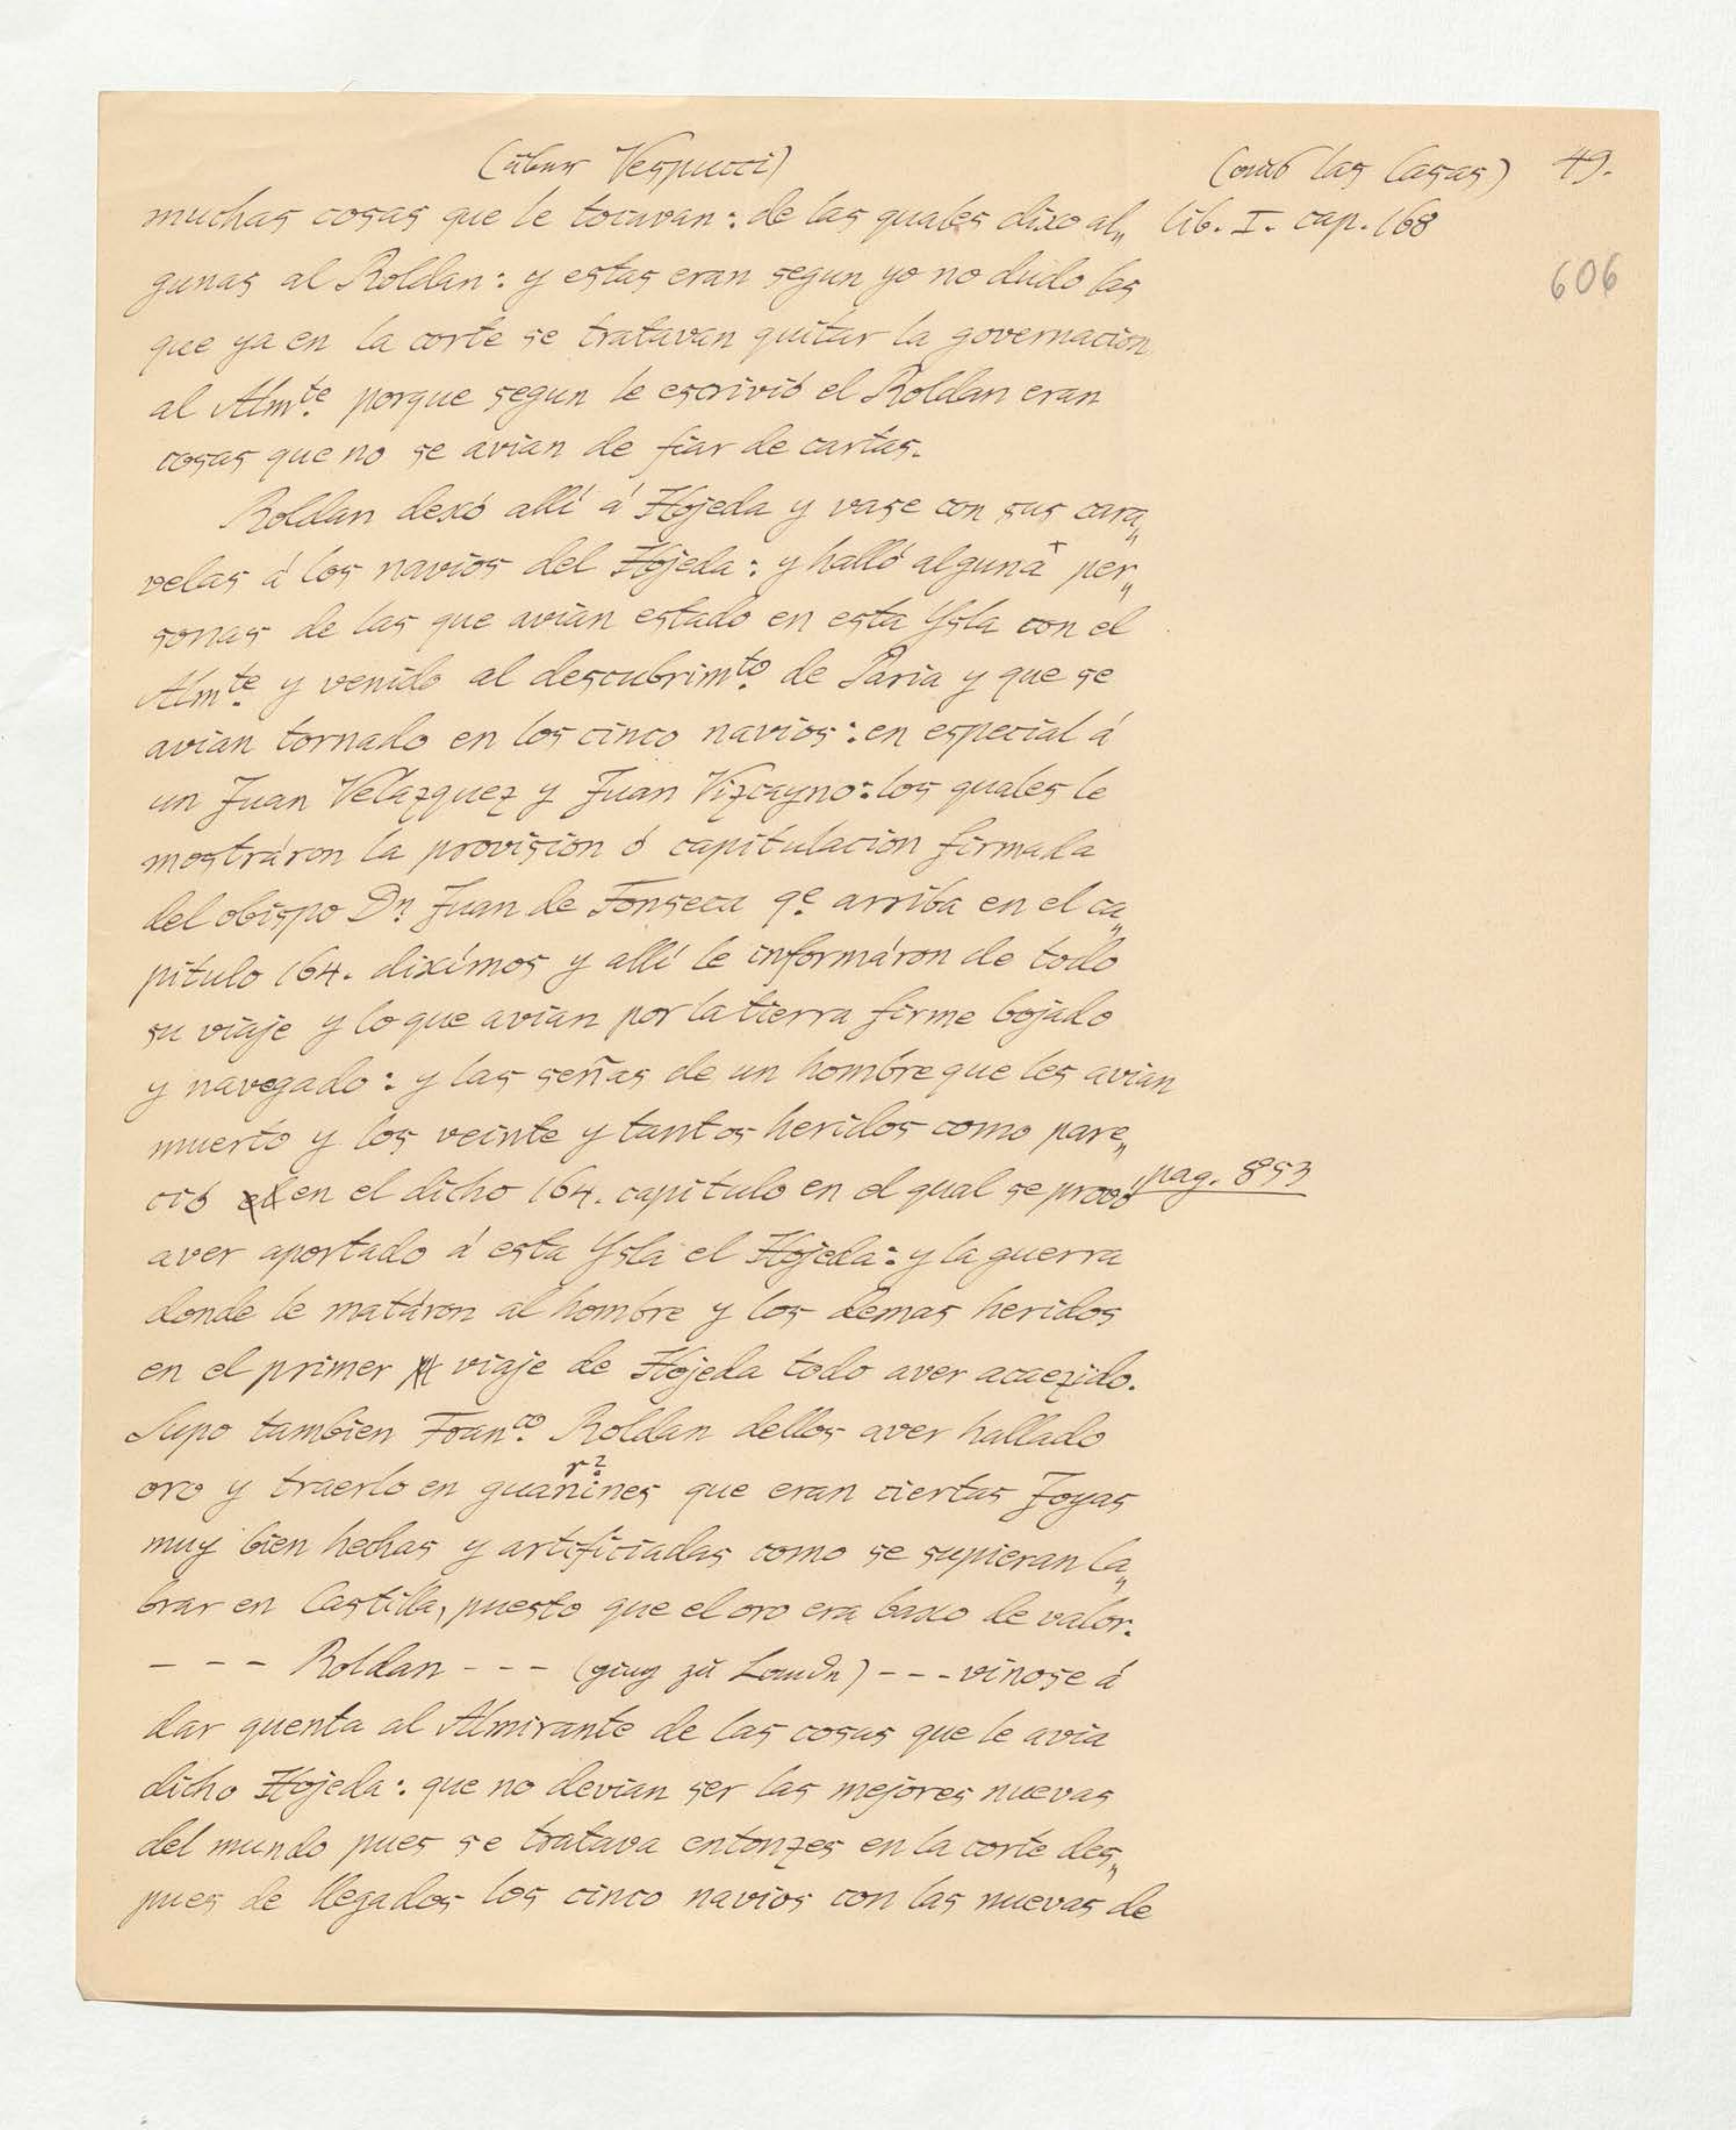 (über Vespucci) (aus las Casas) 49.
muchas cosas que le tocavan: de las quales dixo al„ lib. I. cap. 168
gunas al Roldan: y estas eran segun yo no dudo las
606
que ya en la corte se tratavan quitar la governacion
al Almte. porque segun le escrivió el Roldan eran
cosas que no se avian de fiar de cartas.
Roldan dexó allí á Hojeda y vase con sus cara„
velas á los navios del Hojeda: y halló alguna+ per„
sonas de las que avian estado en esta Ysla con el
Almte. y venido al descubrimto. de Paria y que se
avian tornado en los cinco navios: en especial á
un Juan Velazquez y Juan Vizcayno: los quales le
mostráron la provision ó capitulacion firmada
del obispo Dn Juan de Fonseca qe. arriba en el ca„
pitulo 164. diximos y allí le informáron de todo
su viaje y lo que avian por la tierra firme bojado
y navegado: y las señas de un hombre que les avian
muerto y los veinte y tantos heridos como pare„
ció en el dicho 164. capitulo en el qual se provó pag. 853
aver aportado á esta Ysla el Hojeda: y la guerra
donde le matáron al hombre y los demas heridos
en el primer viaje de Hojeda todo aver acaezido.
Supo tambien Franco. Roldan dellos aver hallado
oro y traerlo en guanines que eran ciertas Joyas
muy bien hechas y artificiadas como se supieran la„
brar en Castilla, puesto que el oro era baxo de valor.
- - - Roldan - - - (ging zu Landn) - - - vinose á
dar quenta al Almirante de las cosas que le avia
dicho Hojeda: que no devian ser las mejores nuevas
del mundo pues se tratava entonzes en la corte des„
pues de llegados los cinco navios con las nuevas de